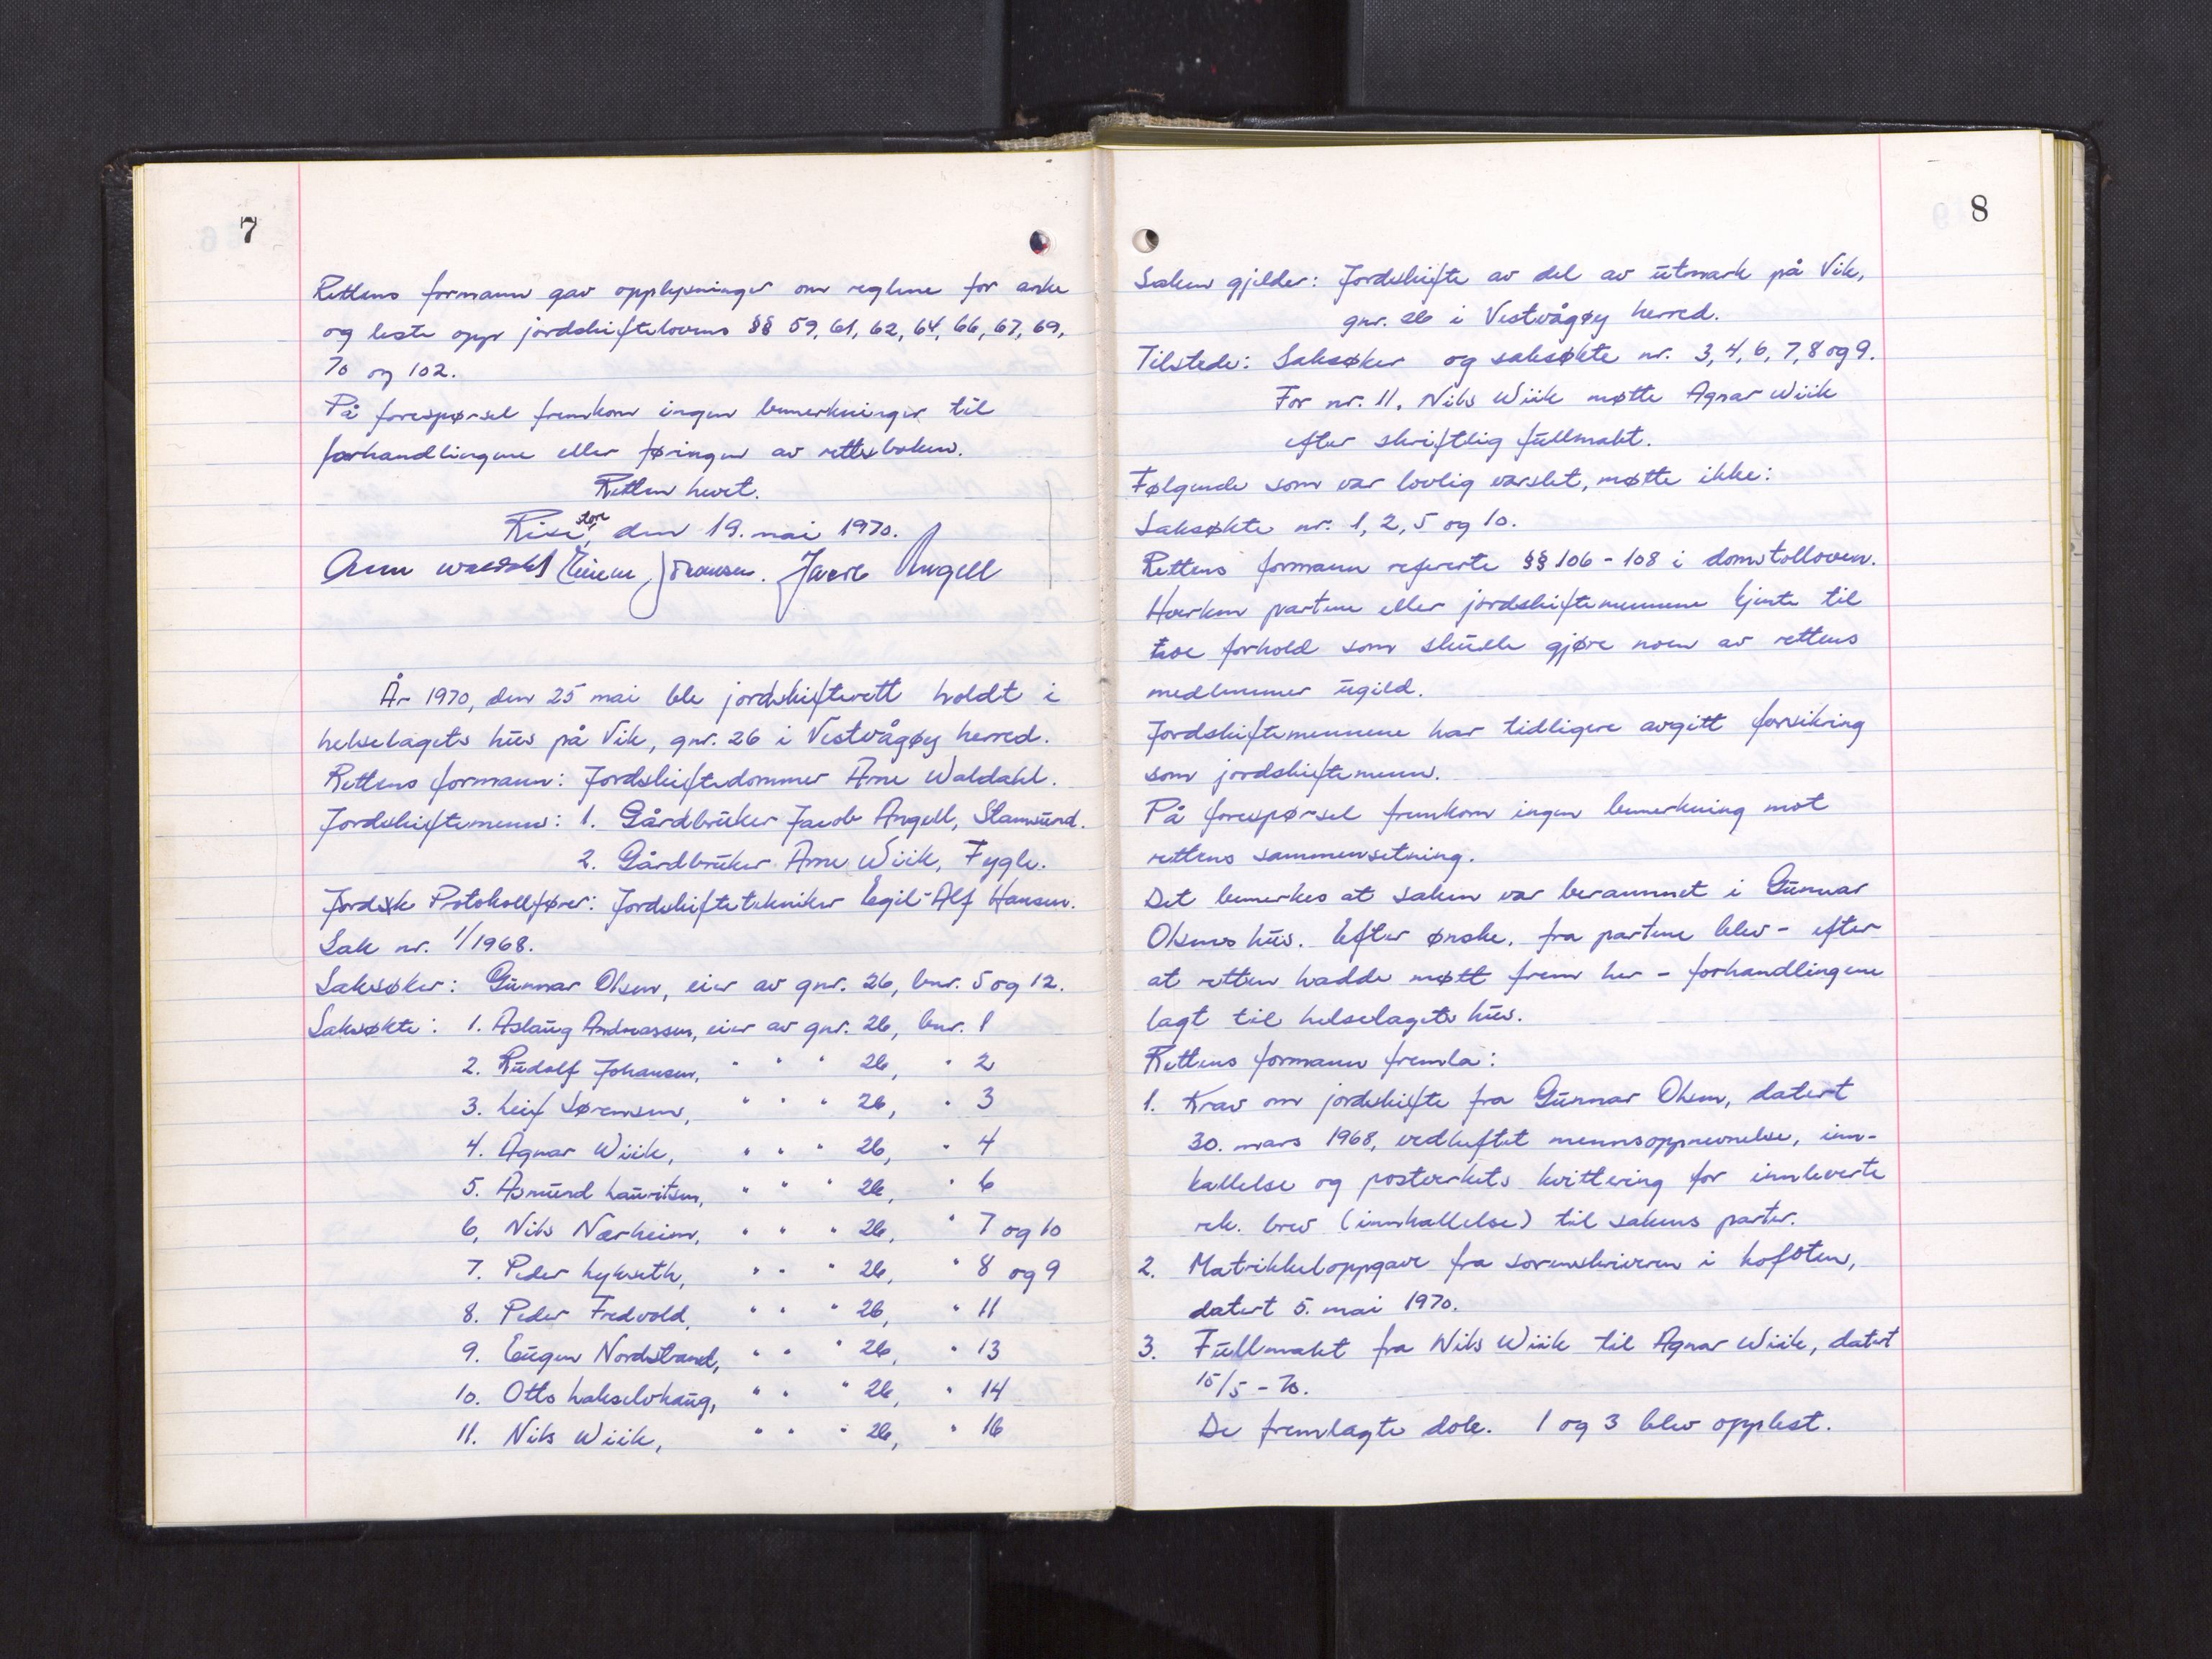 7
Rettens formann gav opplysninger om reglene for anke
og leste opp jordskiftelovens §§ 59, 61, 62, 64, 66, 67, 69,
70 og 102.
På forespørsel fremkom ingen bemerkninger til
forhandlingene eller føringen av rettsboken.
Retten hevet.
store
Rise, den 19. mai 1970.
Arne Waldahl Einar Johansen. Jacob Angell
År 1970, den 25 mai ble jordskifterett holdt i
helselagets hus på Vik, gnr. 26 i Vestvågøy herred.
Rettens formann: Jordskiftedommer Arne Waldahl.
Jordskiftemenn: 1. Gårdbruker Jacob Angell, Stamsund.
2. Gårdbruker Arne Wiik, Fygle.
Jordsk Protokollfører: Jordskiftetekniker Egil Alf Hansen.
Sak nr. 1/1968.
Saksøker: Gunnar Olsen, eier av gnr. 26, bnr. 5 og 12.
Saksøkte: 1. Aslaug Andreassen, eier av gnr. 26, bnr. 1
2. Rudolf Johansen, " " " 26, " 2
3. Leif Sørensen, " " " 26, " 3
4. Agnar Wiik, " " " 26, " 4
5. Asmund Lauritsen, " " " 26, " 6
6. Nils Nærheim, " " " 26, " 7 og 10
7. Peder Lykseth, " " " 26, " 8 og 9
8. Peder Fredvold, " " " 26, " 11
9. Eugen Nordstrand, " " " 26, " 13
10. Otto Lakselvhaug, " " " 26, " 14
11. Nils Wiik, " " " 26, " 16
8
Saken gjelder: Jordskifte av del av utmark på Vik,
gnr. 26 i Vestvågøy herred.
Tilstede: Saksøker og saksøkte nr. 3, 4, 6, 7, 8 og 9.
For nr. 11. Nils Wiik møtte Agnar Wiik
efter skriftlig fullmakt.
Følgende som var lovlig varslet, møtte ikke:
Saksøkte nr. 1, 2, 5 og 10.
Rettens formann refererte §§ 106 - 108 i domstolloven.
Hverken partene eller jordskiftemennene kjente til
noe forhold som skulle gjøre noen av rettens
medlemmer ugild.
Jordskiftemennene har tidligere avgitt forsikring
som jordskiftemenn.
På forespørsel fremkom ingen bemerkning mot
rettens sammensetning.
Det bemerkes at saken var berammet i Gunnar
Olsens hus. Efter ønske, fra partene blev - efter
at retten hadde møtt frem her - forhandlingene
lagt til helselagets hus.
Rettens formann fremla:
1. Krav om jordskifte fra Gunnar Olsen, datert
30. mars 1968, vedheftet mennsoppnevnelse, inn-
kallelse og postverkets kvittering for innleverte
rek. brev (innkallelse) til sakens parter.
2. Matrikkeloppgave fra sorenskriveren i Lofoten,
datert 5. mai 1970.
3. Fullmakt fra Nils Wiik til Agnar Wiik, datert
15/5 - 70.
De fremlagte dok. 1 og 3 blev opplest.